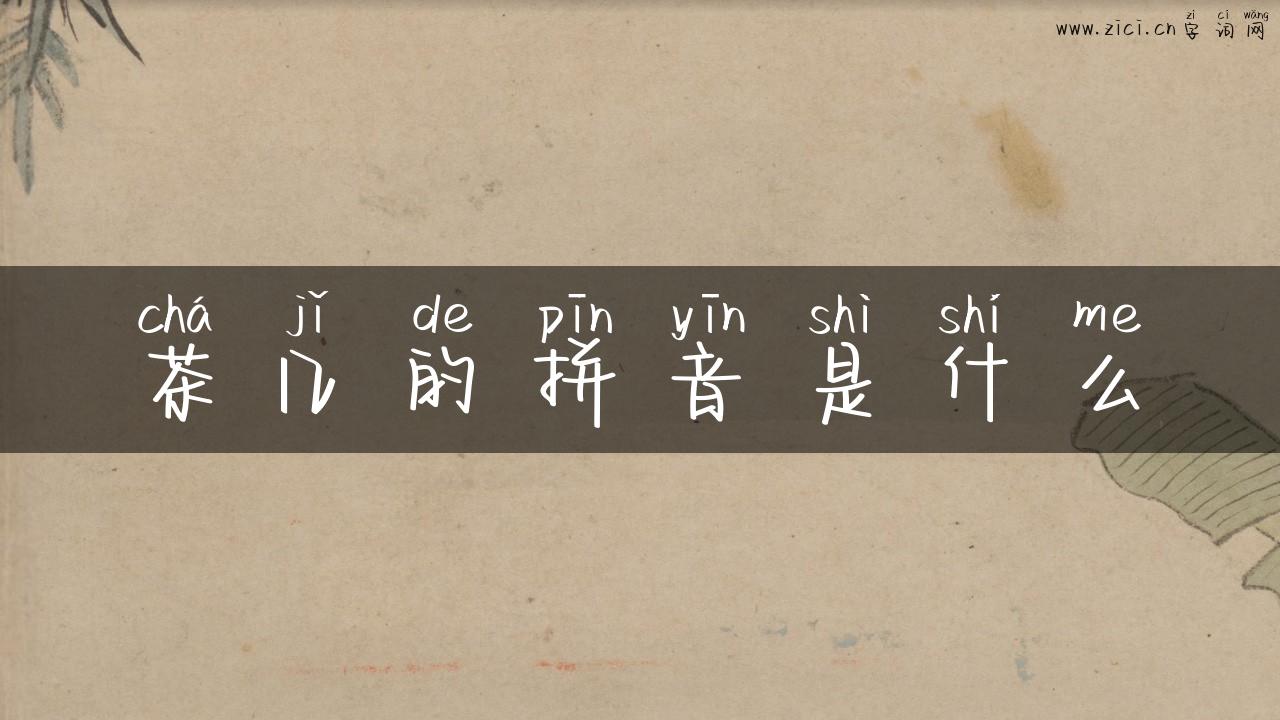 zì cí wǎng
www.zici.cn 字词网
chá jǐ de pīn yīn shì shí me
茶几的拼音是什么